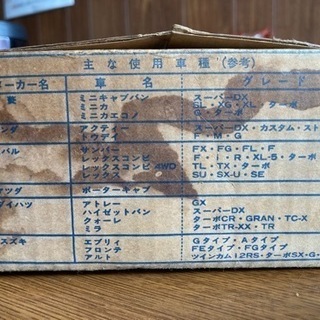 主な使用車種(参考)
ーカー名 車名 グレード
菱 ミニキャブバン スーパーDX
ミニカ SL・XG・XL・ターボ
ミニカエコノ G・ターボ
ンダ アクティー スーパーDX・カスタム・スト
トゥデイ F・M・G
バル サンバー FX・FG・FL・F
レックスコンビ F・i・R・XL-5・ターボ
レックスコンビ4WD TL・TX・ターボ
レックス SU・SX-U・SE
マツダ ポーターキャブ
イハツ アトレー GX
ハイゼットバン スーパーDX
クオーレ ターボCR・GRAN・TC-X
ミラ ターボTR-XX・TR
スズキ エブリィ Gタイプ・Aタイプ
フロンテ FEタイプ・FGタイプ
アルト ツインカム12RS・ターボSX・G・